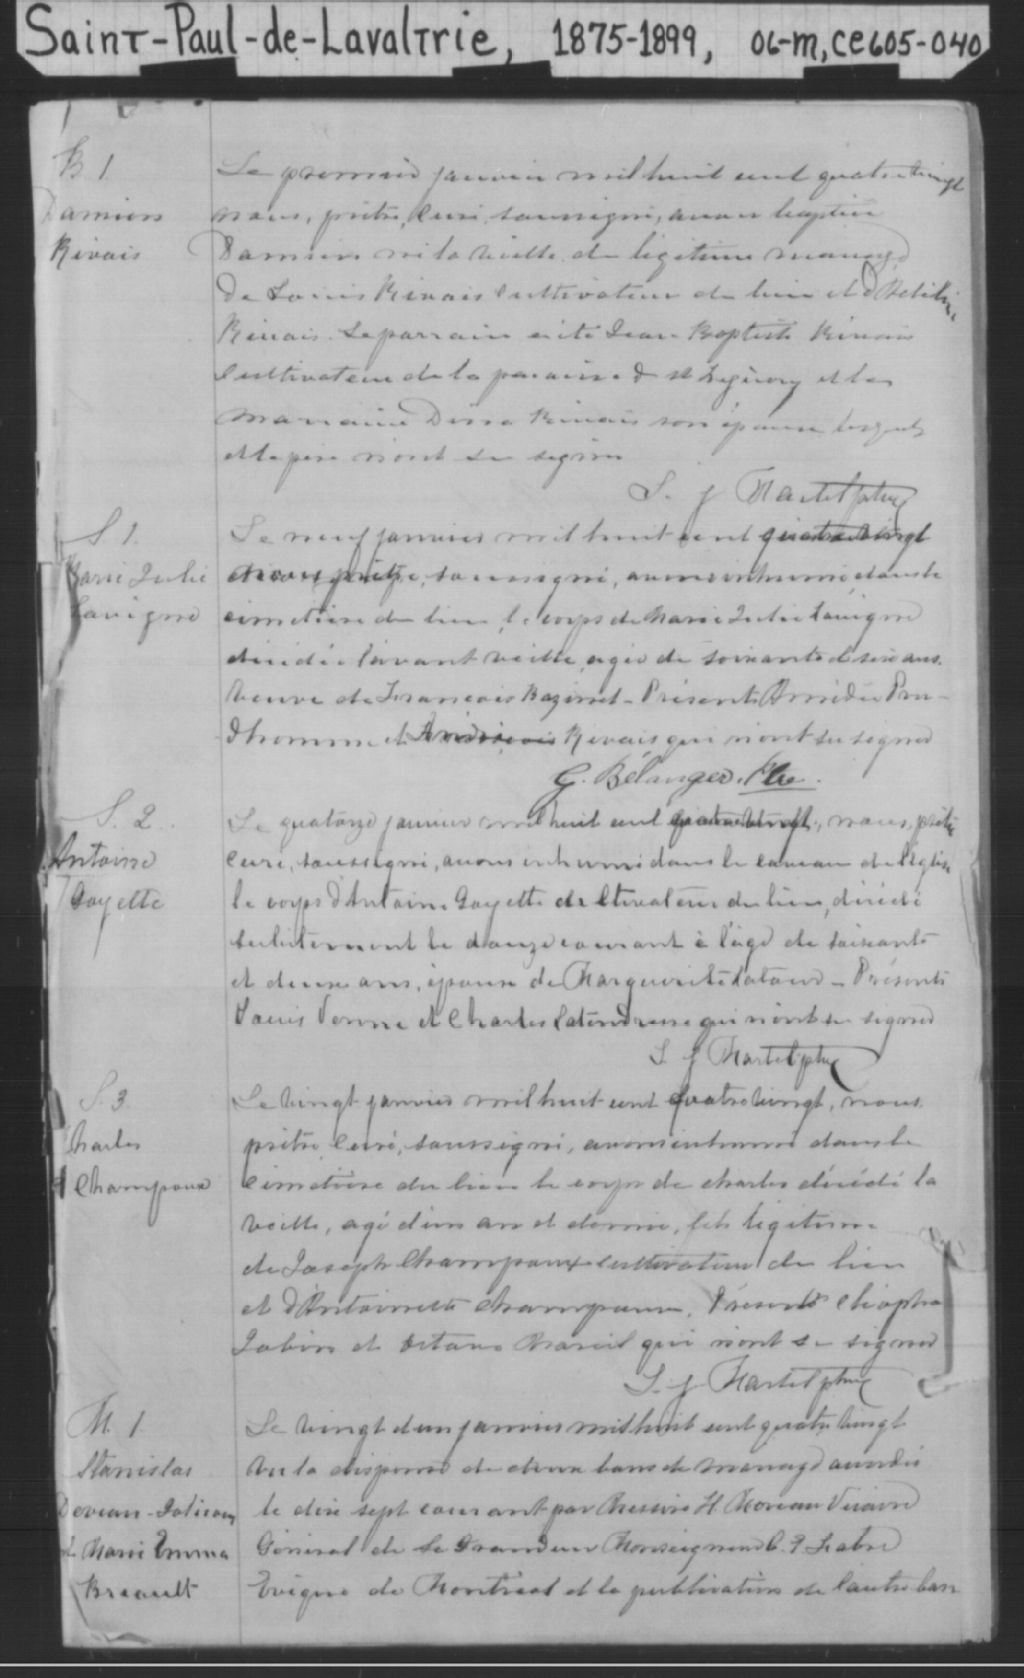 Saint-Paul-de-Lavaltrie, 1875-1899, 06-M, CE605-040
B 1
Damiens
Rivais
Le premier janvier mil huit cent quatre vingt
nous, prêtre, curé, soussigné, avons baptisé
Damiens né la veille, de légitime mariage
de Louis Rivais cultivateur de lieu et d'
Rivais. Le parrain a été Jean-Baptiste Rivais
cultivateur de la paroisse de St et la
marraine Rivais son épouse lesquels
et le père n'ont su signer
S. J. Martel ptre
S 1.
Marie Julie
Lavigne
Le neuf janvier mil huit cent quatre vingt
nous prêtre, soussigné, avons inhumé dans le
cimetière du lieu, le corps de Marie Julie Lavigne
décédée l'avant veille, agée de soixante et seize ans.
Veuve de Francois Bazinet - Présents Amédée Pru-
dhomme et Rivais qui n'ont su signer
G. Bélanger. Ptre.
S. 2.
Antoine
Goyette
Le quatorze janvier mil huit cent quatre vingt, nous, prêtre
curé, soussigné, avons inhumé dans le caveau de l'église
le corps d'Antoine Goyette cultivateur du lieu, décédé
subitement le douze courant à l'âge de soixante
et deux ans, époux de Marguerite Latour - Présents
Louis Venne et Charles Latendresse qui n'ont su signer
S. J. Martel ptre
S. 3.
Charles
Champoux
Le vingt janvier mil huit cent quatre vingt, nous
prêtre, curé, soussigné, avons inhumé dans le
cimetière du lieu le corps de Charles décédé la
veille, agé d'un an et demie, fils légitime
de Joseph Champoux cultivateur du lieu
et d'Antoinette Présents Cléophas
et Octave qui n'ont su signer
S. J. Martel ptre
M. 1
Stanislas
Jolicoeur
et Marie Emma
Breault
Le vingt et un janvier mil huit cent quatre vingt
Vu la dispense de deux bans de mariage accordée
le dix sept courant par Messire H. Moreau Vicaire
Général de Sa Grandeur Monseigneur C. E. Fabre
Evêque de Montréal et la publication de l'autre ban